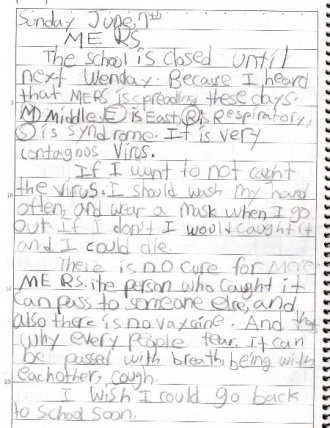 Sunday June, 7th
MERS
The school is closed until
next Wenday. Because I heard
that MERS is spreading these days.
M Middle, E is East, R is Respiratory,
S is syndrome. It is very
contagoos Virus.
If I want to not caught
the virus. I should wash my hand
often, and wear a mask when I go
out If I don't I would caught it
and I could die.
There is no cure for
MERS. the person who caught it
can pass to someone else, and
also there is no vaxcine. And that
why every people fear. It can
be passed with breath, being with
eachother, cough.
I wish I could go back
to school soon.